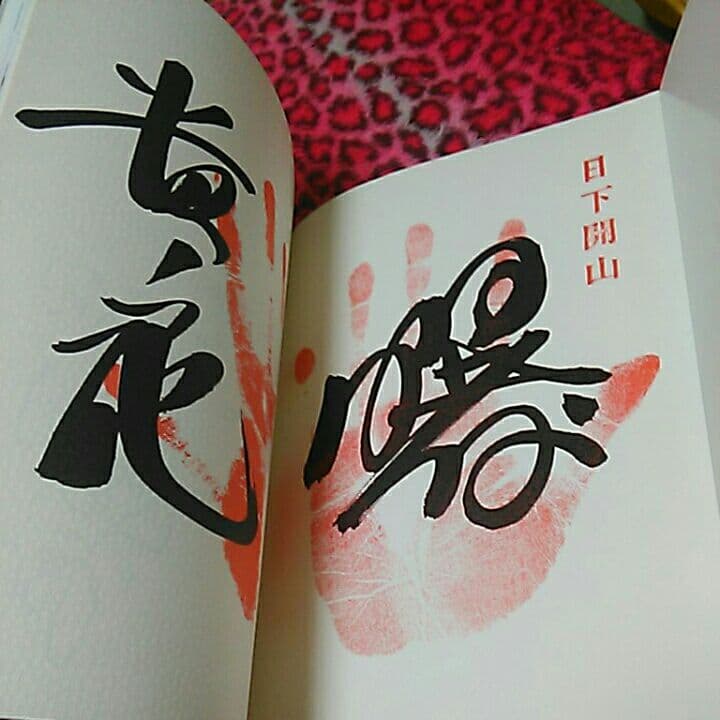 日下開山
曙
貴ノ花